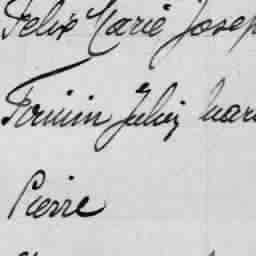 Felix Marie Josep
Firmin Julien Mari
Pierre